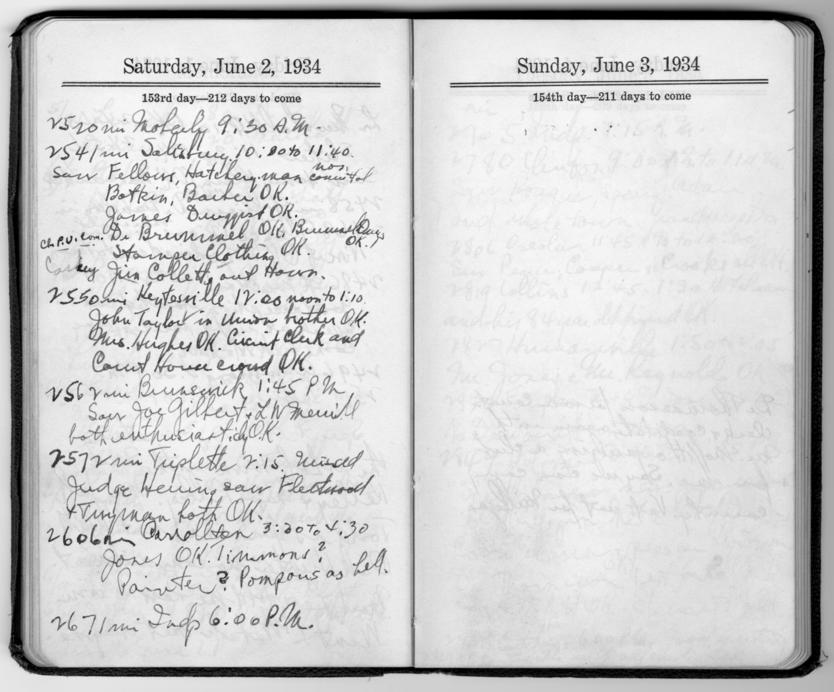 Saturday, June 2, 1934
153rd day—212 days to come
2520 mi Moberly 9:30 A.M.
2541 mi Salisbury 10:20 to 11:40.
Saw Fellows, Hatchery man non comittal
Botkin, Barber OK.
James Druggist OK.
Ch.P.U.Com. Dr Brummel OK, Brummel Drugs OK.
Stamper Clothing OK.
Jim Collett, out Hown.
2550 mi Keytesville 12:00 noon to 1:10.
John Taylor in Union brother OK.
Mrs. Hughes OK. Circuit Clerk and
Court House crowd OK.
2562 mi Brunswick 1:45 P.M.
Saw Joe Gilbert, L W Merrill
both enthusiastic OK.
2572 mi Triplette 2:15. Missed
Judge Hening saw Fleetwood
+ Tingman both OK.
2606 mi Carrollton 3:20 to 4:30
Jones OK. Timmons?
Painter? Pompous as hell.
2671 mi Indp 6:00 P.M.
Sunday, June 3, 1934
154th day—211 days to come